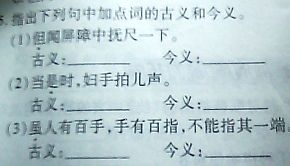 5. 指出下列句中加点词的古义和今义。
(1)但闻屏障中抚尺一下。
古义:________ 今义:________
(2)当是时,妇手拍儿声。
古义:________ 今义:________
(3)虽人有百手,手有百指,不能指其一端
古义:________ 今义:________